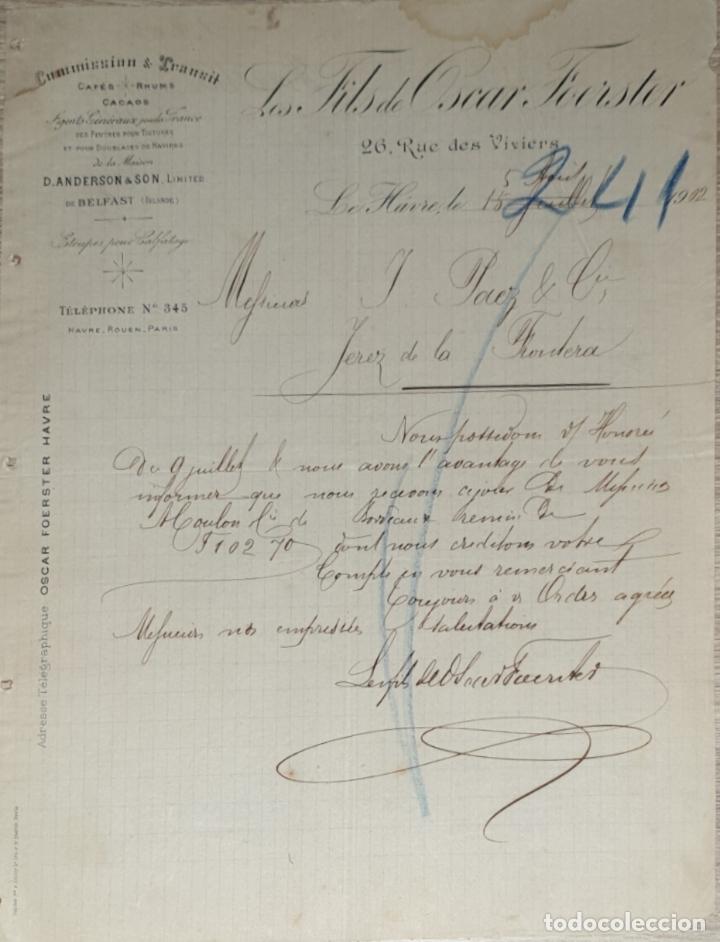 Commission & Transit
CAFÉS - RHUMS
CACAOS
Agents Généraux pour la France
DES FEUTRES POUR TOITURES
ET POUR DOUBLAGES DE NAVIRES
de la Maison
D. ANDERSON & SON, LIMITED
DE BELFAST (IRLANDE)
Etoupes pour Calfatage
TÉLÉPHONE No 345
HAVRE, ROUEN, PARIS
Adresse Télégraphique OSCAR FOERSTER HAVRE
Les Fils de Oscar Foerster
26, Rue des Viviers
5 Août
Le Hâvre, le 15 Juillet 1902
Messieurs J. Paez & Cie,
Jerez de la Frontera
Nous possédons v/ Honorée
du 9 juillet & nous avons l'avantage de vous
informer que nous recevons ce jour de Messieurs
Moulon & Cie de Bordeaux remise de
F 102 70 dont nous créditons votre
Compte en vous remerciant
Toujours à vos Ordres agréez
Messieurs nos empressées salutations
Les fils de Oscar Foerster
todocoleccion